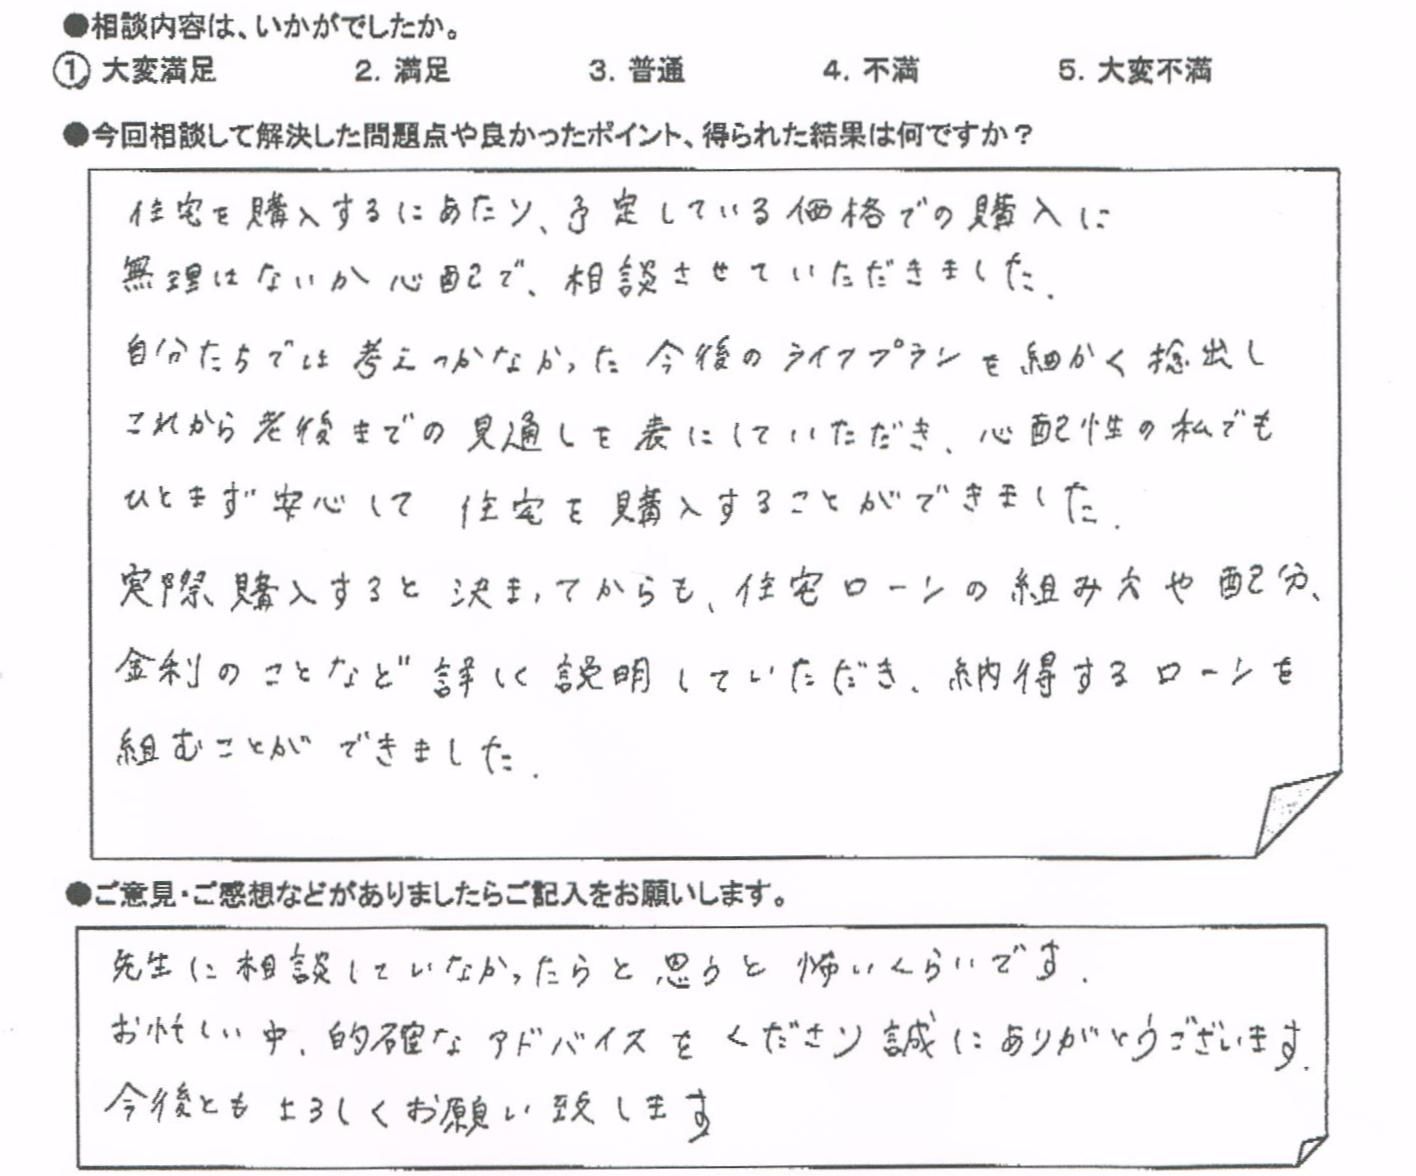 ●相談内容は、いかがでしたか。
① 大変満足 2. 満足 3. 普通 4. 不満 5. 大変不満
●今回相談して解決した問題点や良かったポイント、得られた結果は何ですか？
住宅を購入するにあたり、予定している価格での購入に
無理はないか心配で、相談させていただきました.
自分たちでは考えつかなかった今後のライフプランを細かく捻出し
これから老後までの見通しを表にしていただき、心配性の私でも
ひとまず安心して 住宅を購入することができました.
実際購入すると決まってからも、住宅ローンの組み方や配分、
金利のことなど詳しく説明していただき、納得するローンを
組むことができました.
●ご意見・ご感想などがありましたらご記入をお願いします。
先生に相談していなかったらと思うと怖いくらいです.
お忙しい中、的確なアドバイスをくださり誠にありがとうございます.
今後とも よろしくお願い致します